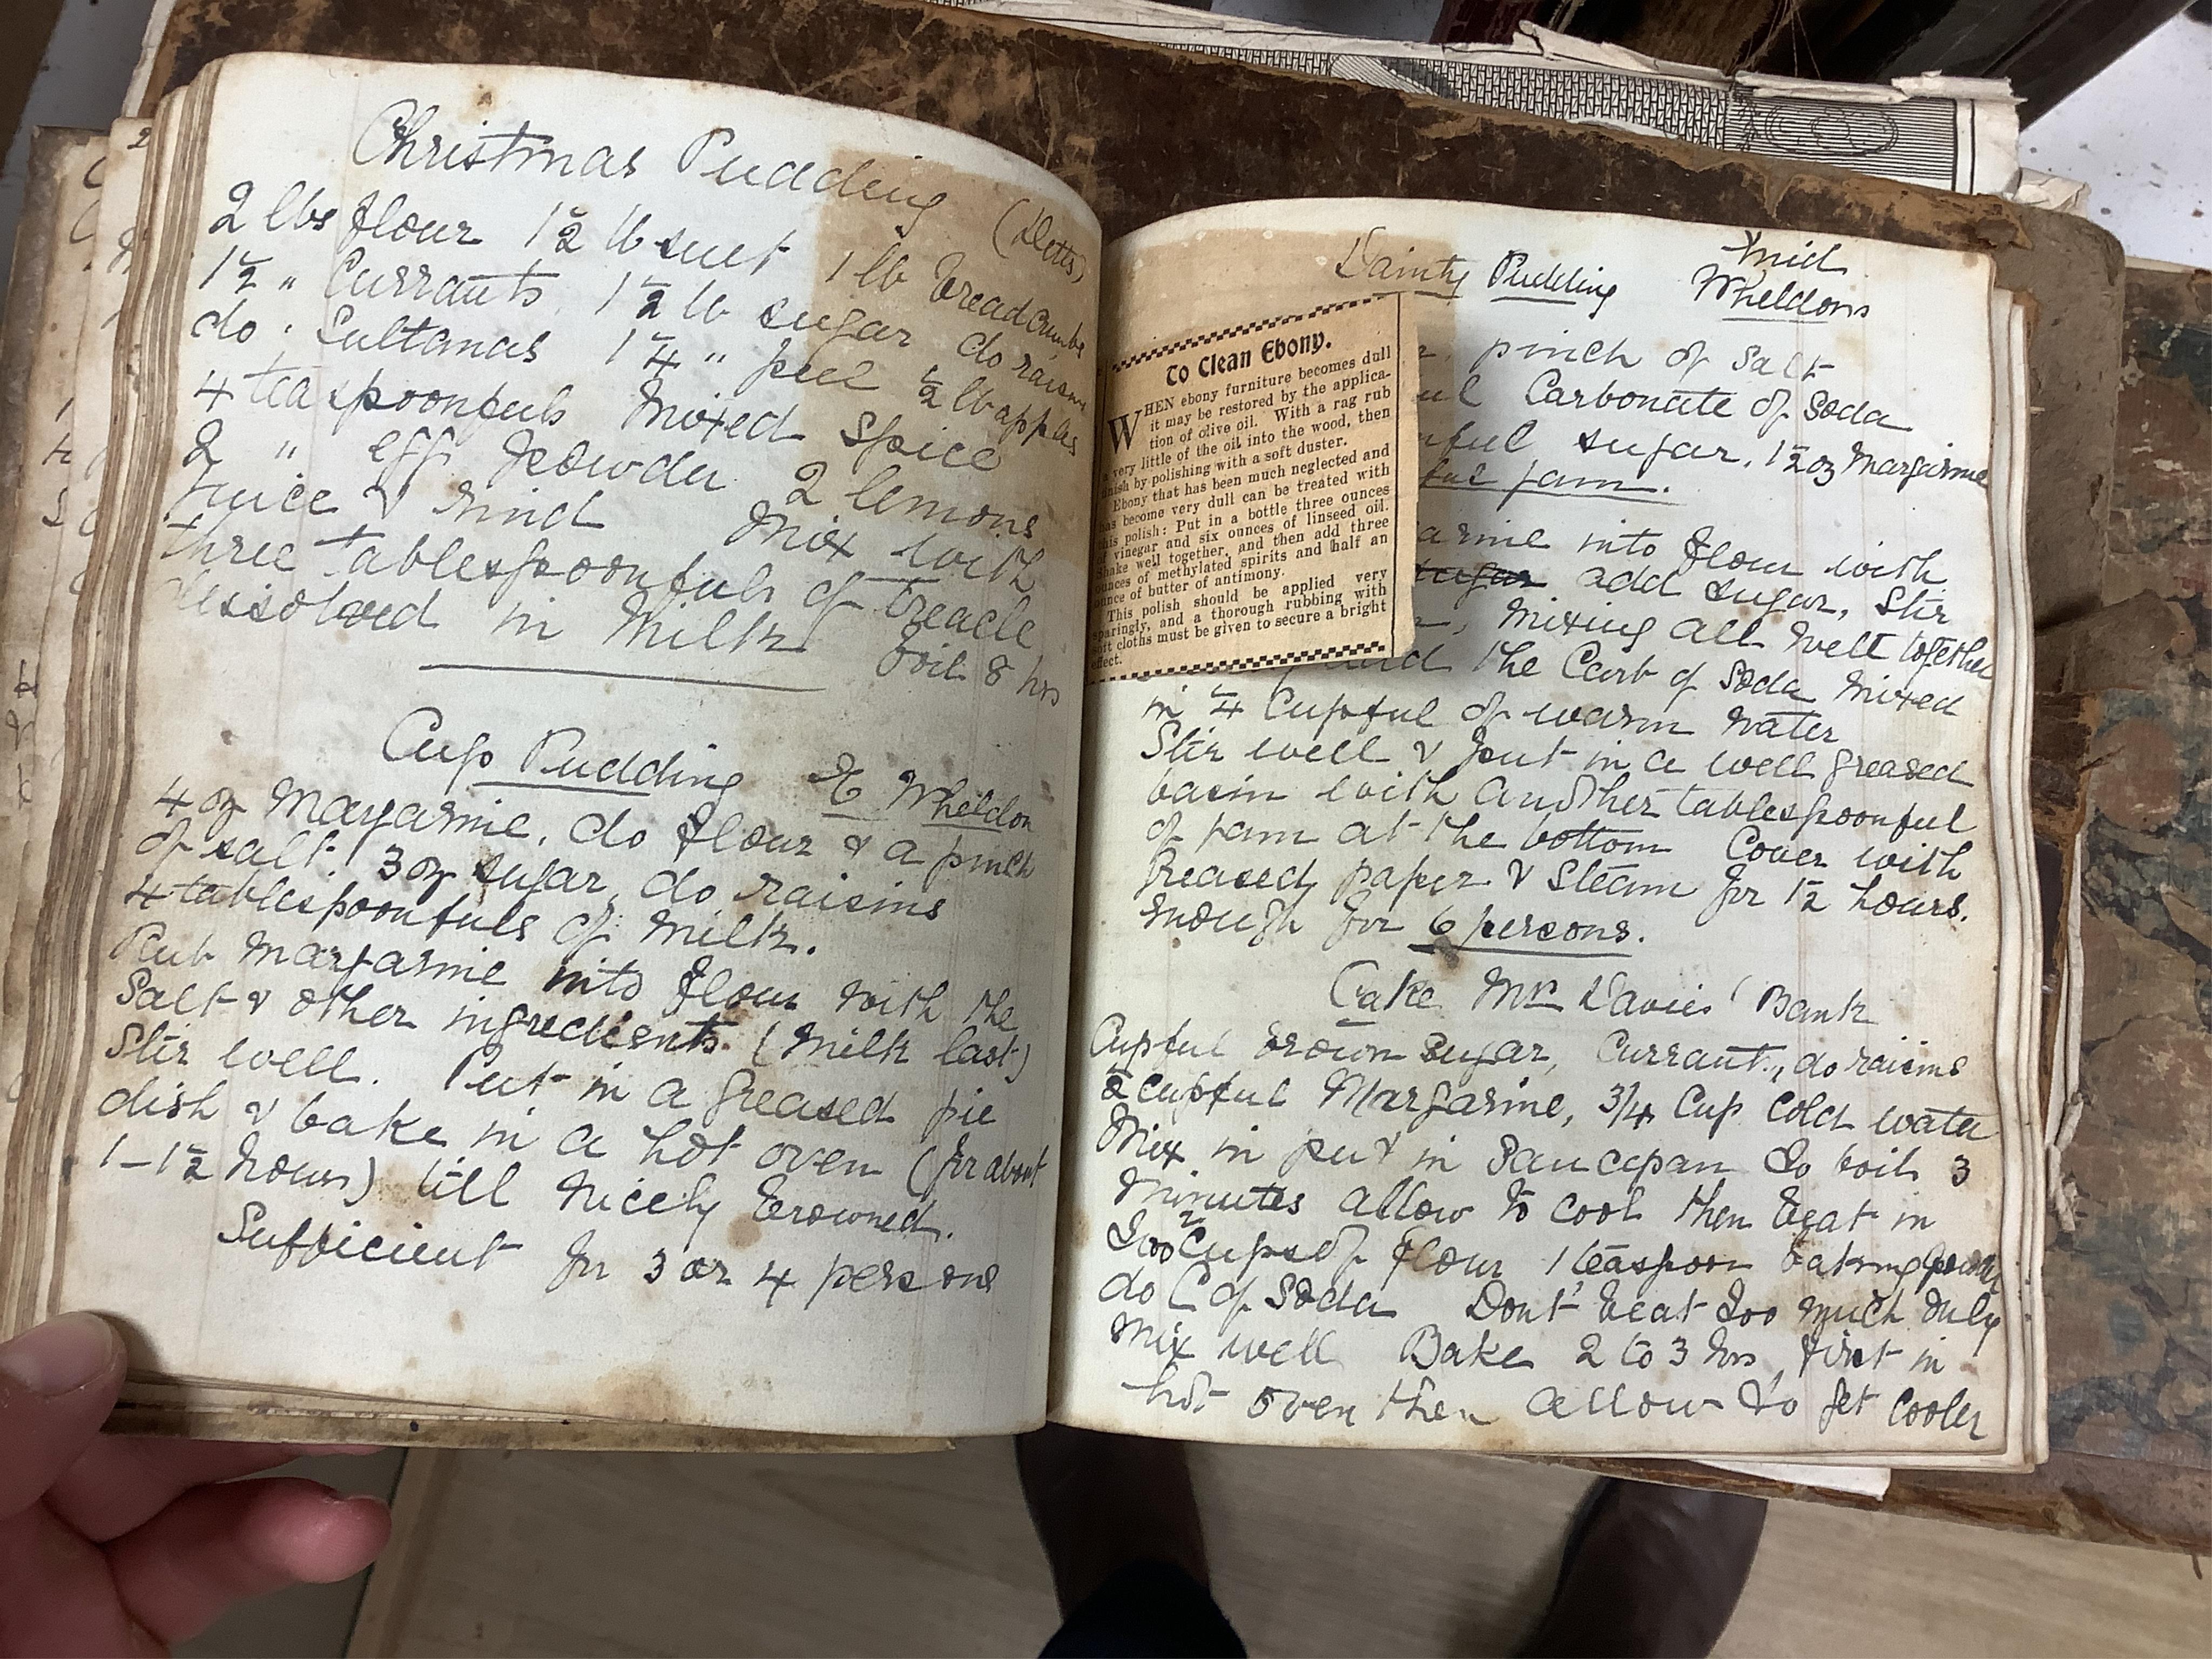 Christmas Pudding
2 lbs flour 1½ lb suet 1 lb breadcrumbs
1½ " Currants 1½ lb sugar do raisins
do . Sultanas 1¼ " peel ½ lb apples
4 teaspoonfuls Mixed Spice
2 " egg powder 2 lemons
juice & rind Mix with
three tablespoonfuls of treacle
dissolved in Milk
boil 8 hrs
Cup Pudding E Wheldon
4 oz Margarine, do flour & a pinch
of salt 3 oz sugar, do raisins
4 tablespoonfuls of Milk.
Rub Margarine into flour with the
Salt & other ingredients (Milk last)
Stir well. Put in a greased pie
dish & bake in a hot oven (for about
1–1½ hours) till nicely browned.
Sufficient for 3 or 4 persons
Dainty Pudding Enid
Wheldons
pinch of Salt
Carbonate of Soda
sugar, 1½ oz Margarine
jam.
into flour with
sugar add sugar, Stir
, Mixing all well together
the Carb of Soda Mixed
in ¼ Cupful of warm water
Stir well & put in a well greased
basin with another tablespoonful
of jam at the bottom Cover with
greased paper & Steam for 1½ hours.
enough for 6 persons.
To Clean Ebony.
WHEN ebony furniture becomes dull
it may be restored by the applica-
tion of olive oil. With a rag rub
a very little of the oil into the wood, then
finish by polishing with a soft duster.
Ebony that has been much neglected and
has become very dull can be treated with
this polish: Put in a bottle three ounces
of vinegar and six ounces of linseed oil.
Shake well together, and then add three
ounces of methylated spirits and half an
ounce of butter of antimony.
This polish should be applied very
sparingly, and a thorough rubbing with
soft cloths must be given to secure a bright
effect.
Cake Mrs Davies' Bank
Cupful brown Sugar, Currants, do raisins
½ cupful Margarine, 3/4 Cup Cold water
Mix in put in Saucepan to boil 3
Minutes allow to cool then beat in
too 2 cups of flour 1 teaspoon baking powder
do C of Soda Dont' beat too much only
Mix well Bake 2 to 3 hrs first in
hot oven then allow to get cooler